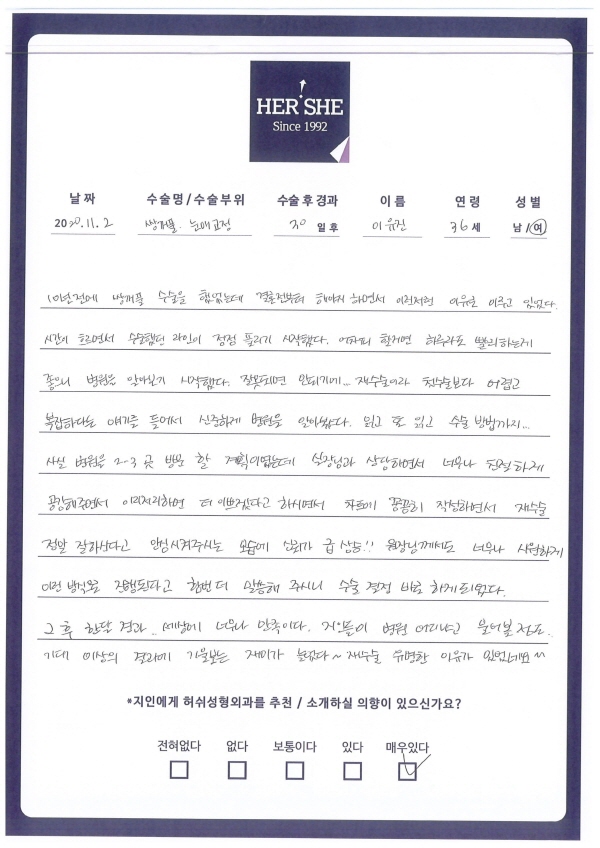 HER SHE
Since 1992
날 짜 수술명/수술부위 수술후경과 이 름 연 령 성 별
2020.11.2 쌍꺼풀. 눈매교정 30 일 후 이유진 36 세 남/여
10년전에 쌍꺼풀 수술을 했었는데 결혼전부터 해야지 하면서 이런저런 이유로 미루고 있었다.
시간이 흐르면서 수술했던 라인이 점점 풀리기 시작했다. 어차피 할거면 하루라도 빨리하는게
좋으니 병원을 알아보기 시작했다. 잘못되면 안되기에... 재수술이라 첫수술보다 어렵고
복잡하다는 얘기를 들어서 신중하게 병원을 알아봤다. 읽고 또 읽고 수술 방법까지...
사실 병원을 2-3 곳 방문 할 계획이였는데 실장님과 상담하면서 너무나 친절하게
공감해주면서 이리저리하면 더 이쁘겠다고 하시면서 차트에 꼼꼼히 작성하면서 재수술
정말 잘하신다고 안심시켜주시는 모습에 신뢰가 급 상승!! 원장님께서도 너무나 시원하게
이런 방식으로 진행된다고 한번 더 말씀해 주시니 수술 결정 바로 하게되었다.
그 후 한달 경과.. 세상에 너무나 만족이다. 지인들이 병원 어디냐고 물어볼 정도..
기대 이상의 결과에 거울보는 재미가 늘었다~ 재수술 유명한 이유가 있었네요 ^^
*지인에게 허쉬성형외과를 추천 / 소개하실 의향이 있으신가요?
전혀없다 없다 보통이다 있다 매우있다